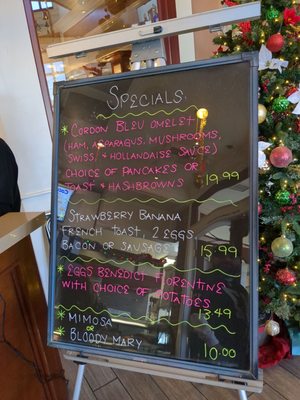 SPECIALS
* CORDON BLEU OMELET
(HAM, ASPARAGUS, MUSHROOMS,
SWISS, & HOLLANDAISE SAUCE)
CHOICE OF PANCAKES OR
TOAST & HASHBROWNS 19.99
STRAWBERRY BANANA
FRENCH TOAST, 2 EGGS,
BACON OR SAUSAGE 15.99
* EGGS BENEDICT FLORENTINE
WITH CHOICE OF POTATOES
13.49
* MIMOSA
OR
BLOODY MARY 10.00